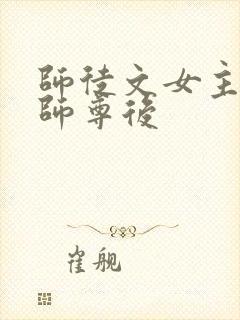 師徒文女主
師尊後
崔舰